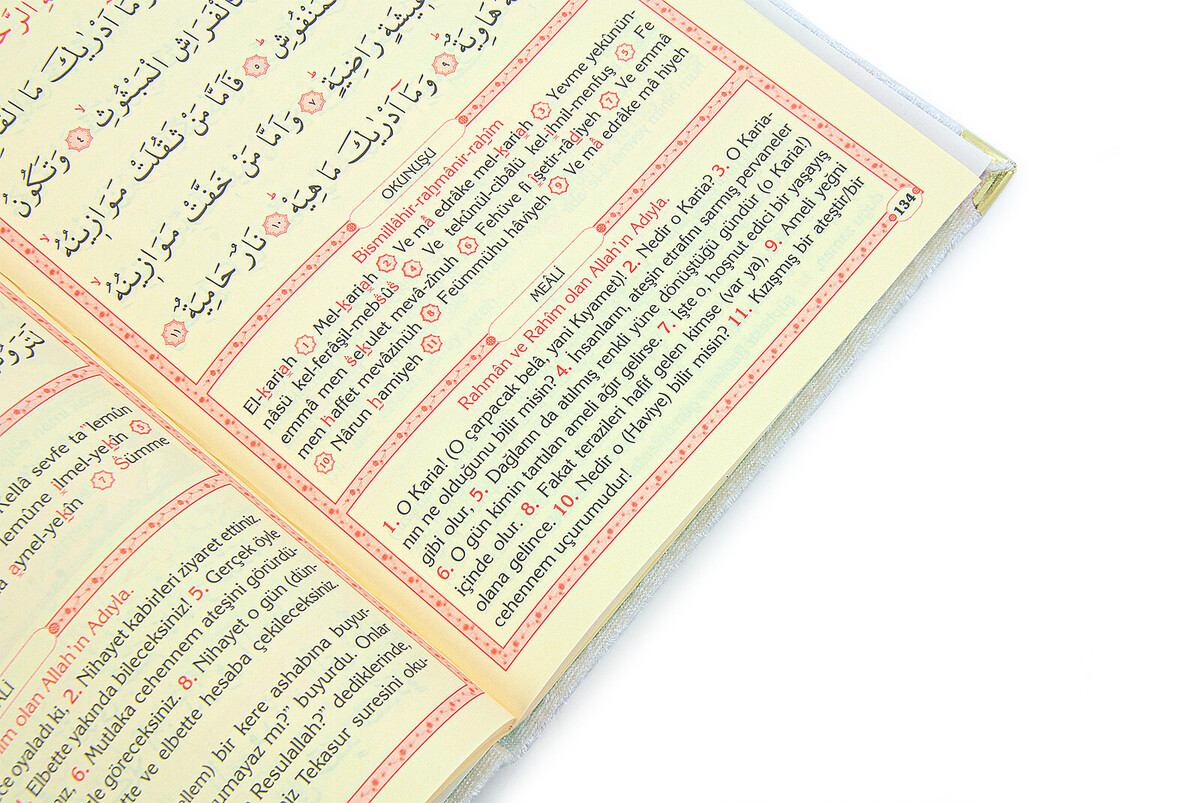 الْمَبْثُوثِ ٤ وَتَكُونُ
الْمَنْفُوشِ ٥ فَاَمَّا مَنْ ثَقُلَتْ مَوَازِينُهُ
رَاضِيَةٍ ٧ وَاَمَّا مَنْ خَفَّتْ مَوَازِينُهُ
هَاوِيَةٌ ٩ وَمَٓا اَدْرٰيكَ مَا هِيَهْ ١٠ نَارٌ حَامِيَةٌ ١١
OKUNUŞU
Bismillâhir-rahmânir-rahîm
El-kariah 1 Mel-kariah 2 Ve mâ edrâke mel-kariah 3 Yevme yekûnün-
nâsü kel-ferâşil-mebsûs 4 Ve tekûnül-cibâlü kel-ihnil-menfuş 5 Fe
emmâ men sekulet mevâ-zînuh 6 Fehüve fi îşetir-râdiyeh 7 Ve emmâ
men haffet mevâzinüh 8 Feümmühu hâviyeh 9 Ve mâ edrâke mâ hiyeh
10 Nârun hamiyeh 11
MEÂLİ
Rahmân ve Rahîm olan Allah'ın Adıyla.
1. O Karia! (O çarpacak belâ, yani Kıyamet)! 2. Nedir o Karia? 3. O Karia-
nın ne olduğunu bilir misin? 4. İnsanların, ateşin etrafını sarmış pervaneler
gibi olur, 5. Dağların da atılmış renkli yüne dönüştüğü gündür (o Karia!)
6. O gün kimin tartılan ameli ağır gelirse. 7. İşte o, hoşnut edici bir yaşayış
içinde olur. 8. Fakat terazileri hafif gelen kimse (var ya), 9. Ameli yeğni
olana gelince. 10. Nedir o (Haviye) bilir misin? 11. Kızışmış bir ateştir/bir
cehennem uçurumudur!
134
Kellâ sevfe ta'lemûn
lemûne ilmel-yekîn 5
aynel-yekîn 7 Sümme
olan Allah'ın Adıyla.
oyaladı ki, 2. Nihayet kabirleri ziyaret ettiniz.
Elbette yakında bileceksiniz! 5. Gerçek öyle
6. Mutlaka cehennem ateşini görürdü-
göreceksiniz. 8. Nihayet o gün (dün-
ve elbette hesaba çekileceksiniz.
bir kere ashabına buyur-
buyurdu. Onlar
Resulallah?" dediklerinde,
Tekasur suresini oku-